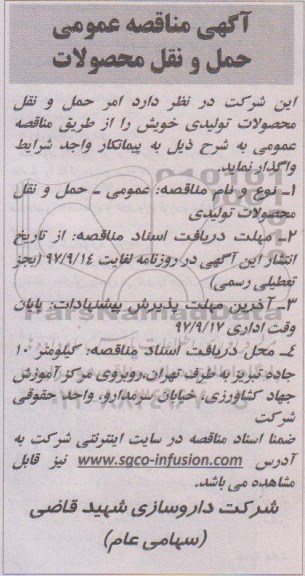 آگهی مناقصه عمومی
حمل و نقل محصولات
این شرکت در نظر دارد امر حمل و نقل
محصولات تولیدی خویش را از طریق مناقصه
عمومی به شرح ذیل به پیمانکار واجد شرایط
واگذار نماید.
۱ـ نوع و نام مناقصه: عمومی ـ حمل و نقل
محصولات تولیدی
۲ـ مهلت دریافت اسناد مناقصه: از تاریخ
انتشار این آگهی در روزنامه لغایت ۹۷/۹/۱۴ (بجز
تعطیلی رسمی)
۳ـ آخرین مهلت پذیرش پیشنهادات: پایان
وقت اداری ۹۷/۹/۱۷
۴ـ محل دریافت اسناد مناقصه: کیلومتر ۱۰
جاده تبریز به طرف تهران،روبروی مرکز آموزش
جهاد کشاورزی، خیابان سرمدارو، واحد حقوقی
شرکت
ضمنا اسناد مناقصه در سایت اینترنتی شرکت به
آدرس www.sgco-infusion.com نیز قابل
مشاهده می باشد.
شرکت داروسازی شهید قاضی
(سهامی عام)
ParsNamadData